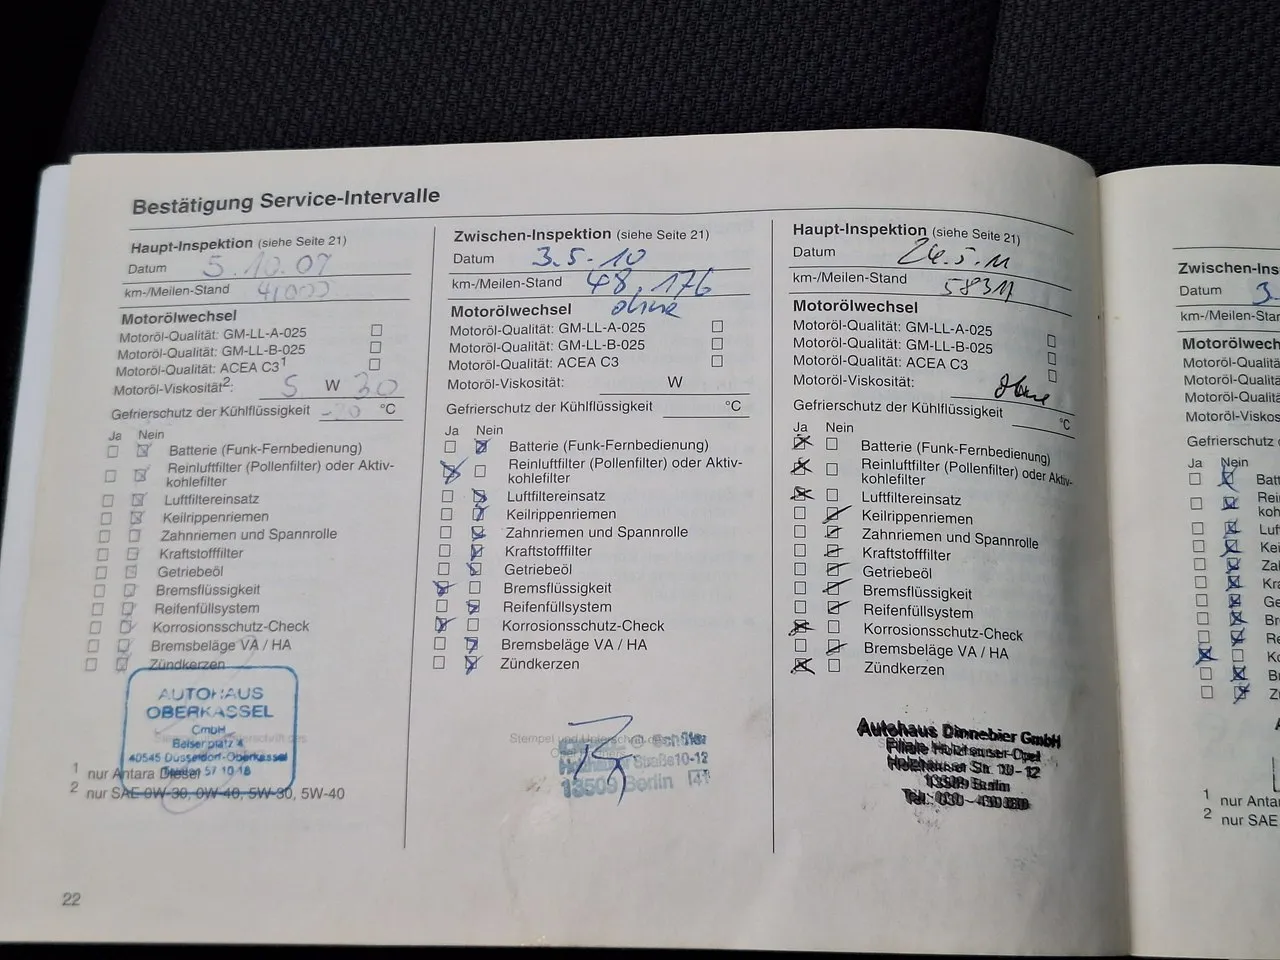 Bestätigung Service-Intervalle
Haupt-Inspektion (siehe Seite 21)
Datum 5.10.09
km-/Meilen-Stand 41000
Motorölwechsel
Motoröl-Qualität: GM-LL-A-025
Motoröl-Qualität: GM-LL-B-025
Motoröl-Qualität: ACEA C3¹
Motoröl-Viskosität²: 5 W 30
Gefrierschutz der Kühlflüssigkeit -20 °C
Ja Nein
Batterie (Funk-Fernbedienung)
Reinluftfilter (Pollenfilter) oder Aktiv-
kohlefilter
Luftfiltereinsatz
Keilrippenriemen
Zahnriemen und Spannrolle
Kraftstofffilter
Getriebeöl
Bremsflüssigkeit
Reifenfüllsystem
Korrosionsschutz-Check
Bremsbeläge VA / HA
Zündkerzen
AUTOHAUS
OBERKASSEL
GmbH
Belsenplatz 4
40545 Düsseldorf-Oberkassel
57 10 18
1 nur Antara Diesel
2 nur SAE 0W-30, 0W-40, 5W-30, 5W-40
22
Zwischen-Inspektion (siehe Seite 21)
Datum 3.5.10
km-/Meilen-Stand 48.176
Motorölwechsel ohne
Motoröl-Qualität: GM-LL-A-025
Motoröl-Qualität: GM-LL-B-025
Motoröl-Qualität: ACEA C3
Motoröl-Viskosität: W
Gefrierschutz der Kühlflüssigkeit °C
Ja Nein
Batterie (Funk-Fernbedienung)
Reinluftfilter (Pollenfilter) oder Aktiv-
kohlefilter
Luftfiltereinsatz
Keilrippenriemen
Zahnriemen und Spannrolle
Kraftstofffilter
Getriebeöl
Bremsflüssigkeit
Reifenfüllsystem
Korrosionsschutz-Check
Bremsbeläge VA / HA
Zündkerzen
Stempel und Unterschrift des
Straße 10-12
13509 Berlin
Haupt-Inspektion (siehe Seite 21)
Datum 24.5.11
km-/Meilen-Stand 58317
Motorölwechsel
Motoröl-Qualität: GM-LL-A-025
Motoröl-Qualität: GM-LL-B-025
Motoröl-Qualität: ACEA C3
Motoröl-Viskosität: ohne
Gefrierschutz der Kühlflüssigkeit °C
Ja Nein
Batterie (Funk-Fernbedienung)
Reinluftfilter (Pollenfilter) oder Aktiv-
kohlefilter
Luftfiltereinsatz
Keilrippenriemen
Zahnriemen und Spannrolle
Kraftstofffilter
Getriebeöl
Bremsflüssigkeit
Reifenfüllsystem
Korrosionsschutz-Check
Bremsbeläge VA / HA
Zündkerzen
Autohaus Dinnebier GmbH
Filiale Holzhauser-Opel
Holzhauser Str. 10-12
13509 Berlin
Tel.: 030 -
Zwischen-Ins
Datum 3.
km-/Meilen-Sta
Motorölwech
Motoröl-Qualitä
Motoröl-Qualitä
Motoröl-Qualitä
Motoröl-Viskos
Gefrierschutz d
Ja Nein
Batt
Rei
koh
Luf
Kei
Za
Kra
Ge
Br
Re
Ko
B
Z
1 nur Anta
2 nur SAE